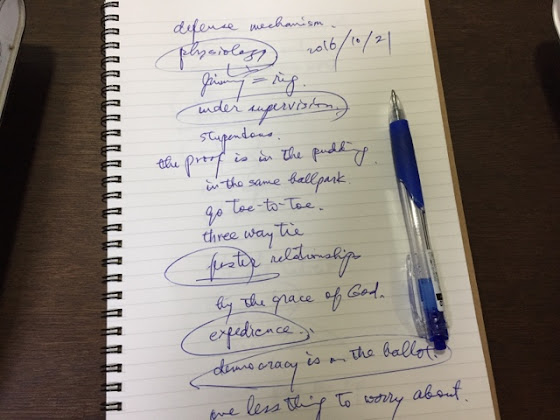 defense mechanism.
physiology 2016/10/21
= ring.
under supervision.
stupendous.
the proof is in the pudding.
in the same ballpark.
go toe-to-toe.
three way tie
foster relationships
by the grace of God.
expedience.
democracy is on the ballot.
one less thing to worry about.